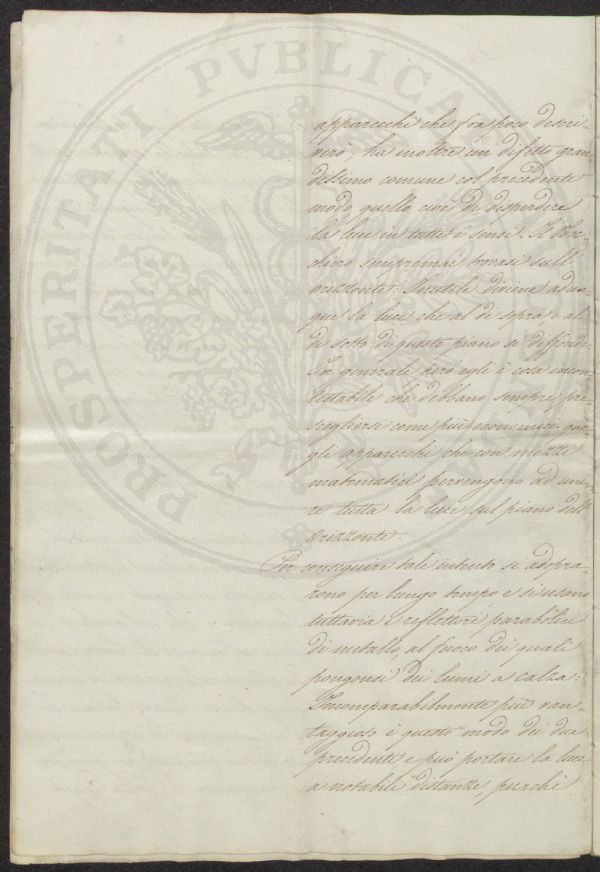 PROSPERITATI PVBLICAE
apparecchi che fra poco descri-
verò, ha inoltre un difetto gran
dissimo comune col precedente
modo quello cioè di disperdere
la luce in tutti i sensi. Il
sempremai trovasi sull'
orizzonte: Inutile diviene adun-
que la luce che al di sopra e al
di sotto di questo piano si diffonde.
In generale però egli è cosa incon
testabile che debbano sempre pre-
scegliersi come più economici que-
gli apparecchi che con mezzi
matematici pervengono ad uni-
re tutta la luce sul piano dell'
Orizzonte.
Per conseguire tale intento si adopra-
rono per lungo tempo e si usano
tuttavia i reflettori parabolici
di metallo, al fuoco dei quali
pongonsi dei lumi a calza:
Incomparabilmente più van-
taggioso è questo modo dei due
precedenti e può portare la luce
a notabili distanze, purchè